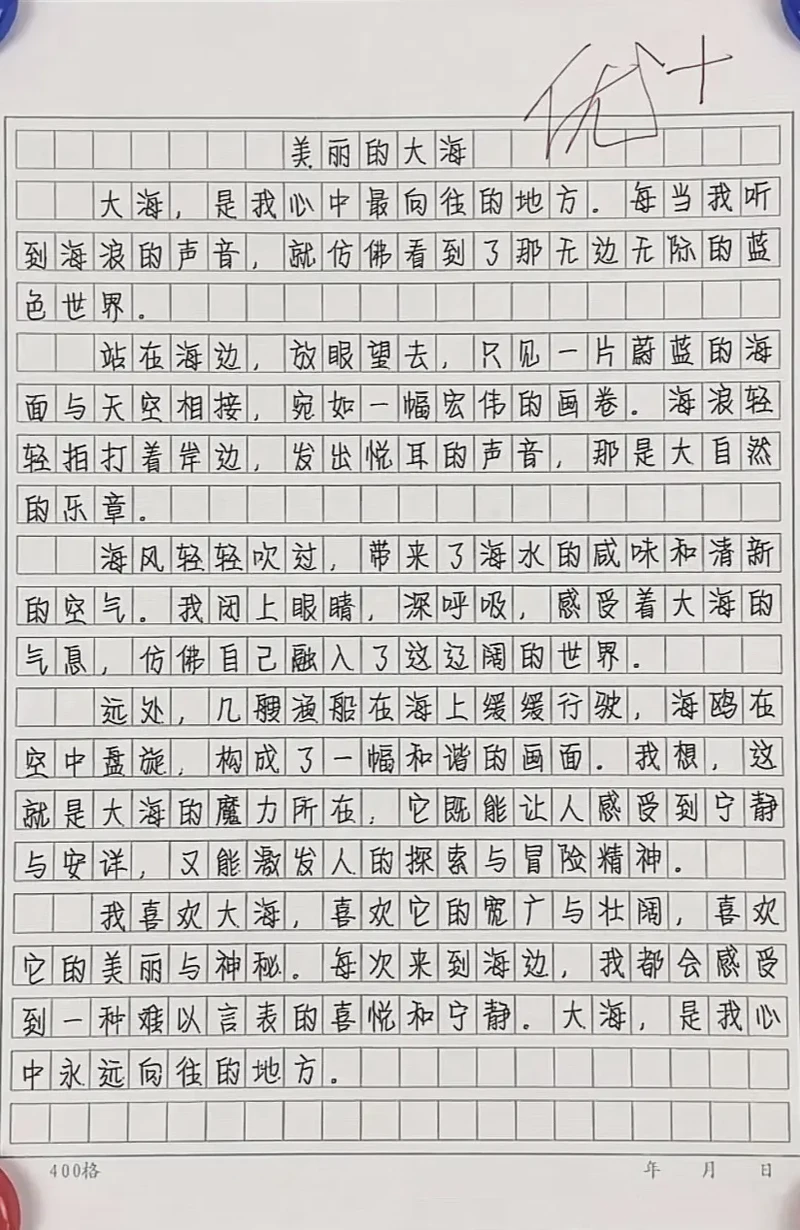 优+
美丽的大海
大海，是我心中最向往的地方。每当我听
到海浪的声音，就仿佛看到了那无边无际的蓝
色世界。
站在海边，放眼望去，只见一片蔚蓝的海
面与天空相接，宛如一幅宏伟的画卷。海浪轻
轻拍打着岸边，发出悦耳的声音，那是大自然
的乐章。
海风轻轻吹过，带来了海水的咸味和清新
的空气。我闭上眼睛，深呼吸，感受着大海的
气息，仿佛自己融入了这辽阔的世界。
远处，几艘渔船在海上缓缓行驶，海鸥在
空中盘旋，构成了一幅和谐的画面。我想，这
就是大海的魔力所在，它既能让人感受到宁静
与安详，又能激发人的探索与冒险精神。
我喜欢大海，喜欢它的宽广与壮阔，喜欢
它的美丽与神秘。每次来到海边，我都会感受
到一种难以言表的喜悦和宁静。大海，是我心
中永远向往的地方。
400格
年 月 日